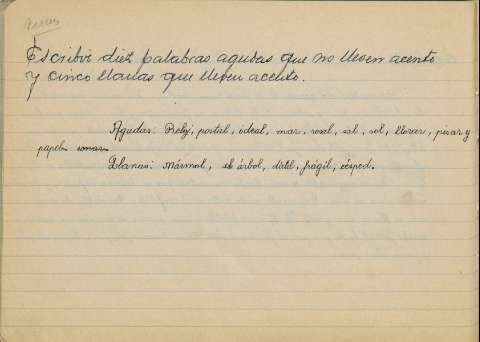 Escribir diez palabras agudas que no lleven acento
y cinco llanas que lleven acento.
Agudas: Reloj, portal, ideal, mar, rosal, sal, sol, llorar, pisar y
papel
Llanas: mármol, árbol, dútil, frágil, césped.